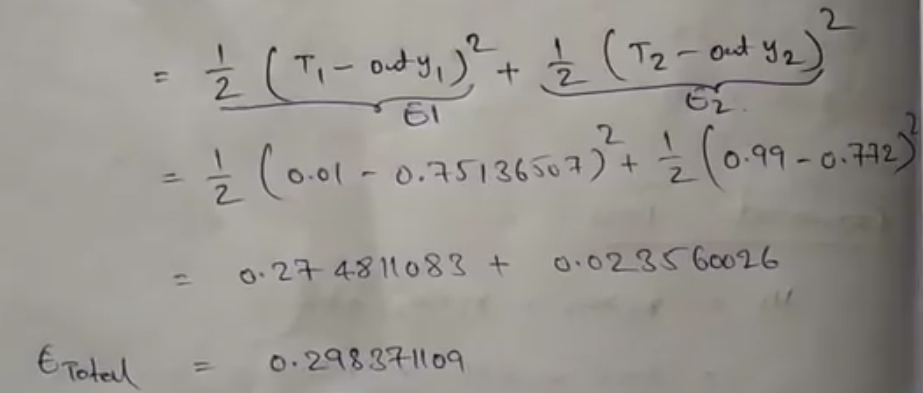 = 1/2 (T₁ - out y₁)² + 1/2 (T₂ - out y₂)²
E1 E2.
= 1/2 (0.01 - 0.75136507)² + 1/2 (0.99 - 0.772)²
= 0.274811083 + 0.023560026
E Total = 0.298371109